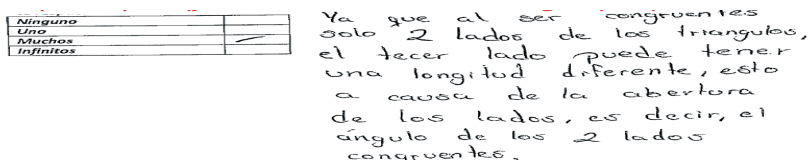 Ninguno
Uno
Muchos
Infinitos
Ya que al ser congruentes
solo 2 lados de los triangulos,
el tecer lado puede tener
una longitud diferente, esto
a causa de la abertura
de los lados, es decir, el
ángulo de los 2 lados
congruentes.